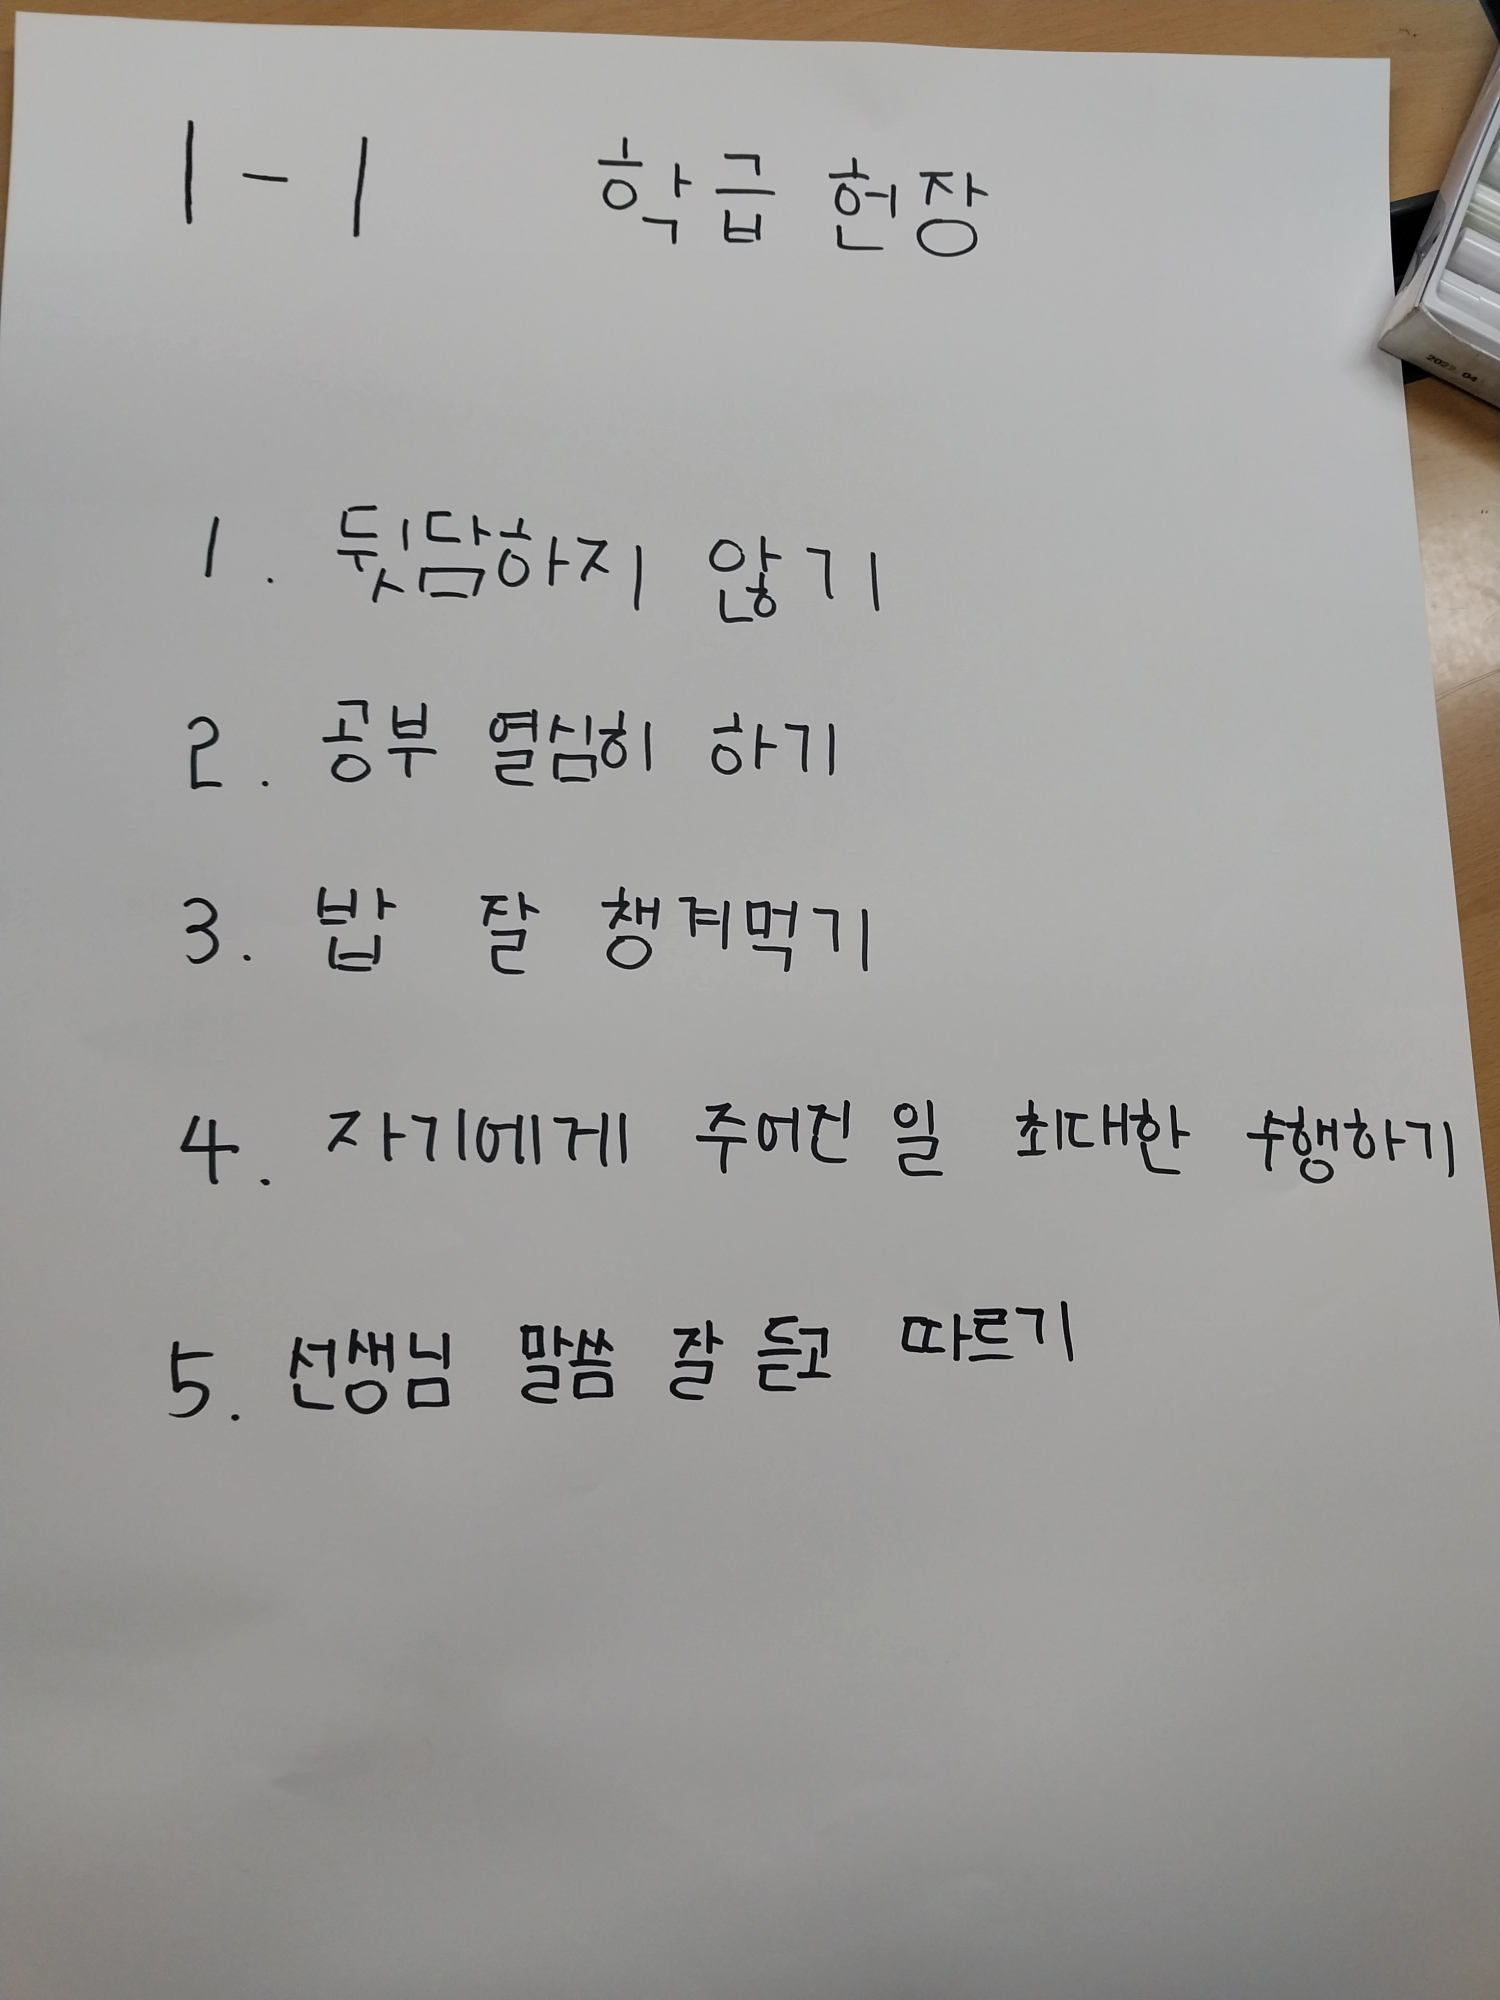 1-1 학급 헌장
2022. 04
1. 뒷담하지 않기
2. 공부 열심히 하기
3. 밥 잘 챙겨먹기
4. 자기에게 주어진 일 최대한 수행하기
5. 선생님 말씀 잘 듣고 따르기